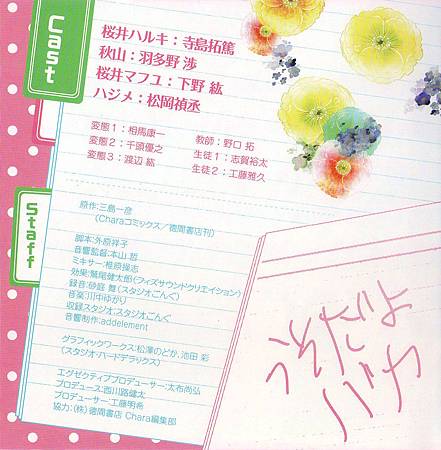 Cast
桜井ハルキ：寺島拓篤
秋山：羽多野 渉
桜井マフユ：下野 紘
ハジメ：松岡禎丞
変態1：相馬康一
変態2：千頭優之
変態3：渡辺 紘
教師：野口 拓
生徒1：志賀裕太
生徒2：工藤雅久
Staff
原作：三島一彦
（Charaコミックス／徳間書店刊）
脚本：外原祥子
音響監督：本山 哲
ミキサー：椎原操志
効果：鷲尾健太郎（フィズサウンドクリエイション）
録音：砂庭 舞（スタジオごんぐ）
音楽：川中ゆかり
収録スタジオ：スタジオごんぐ
音響制作：addelement
グラフィックワークス：松澤のどか、池田 彩
（スタジオ・ハードデラックス）
エグゼクティブプロデューサー：太布尚弘
プロデュース：西川路健太
プロデューサー：工藤明希
協力：（株）徳間書店 Chara編集部
うそだよ
バカ